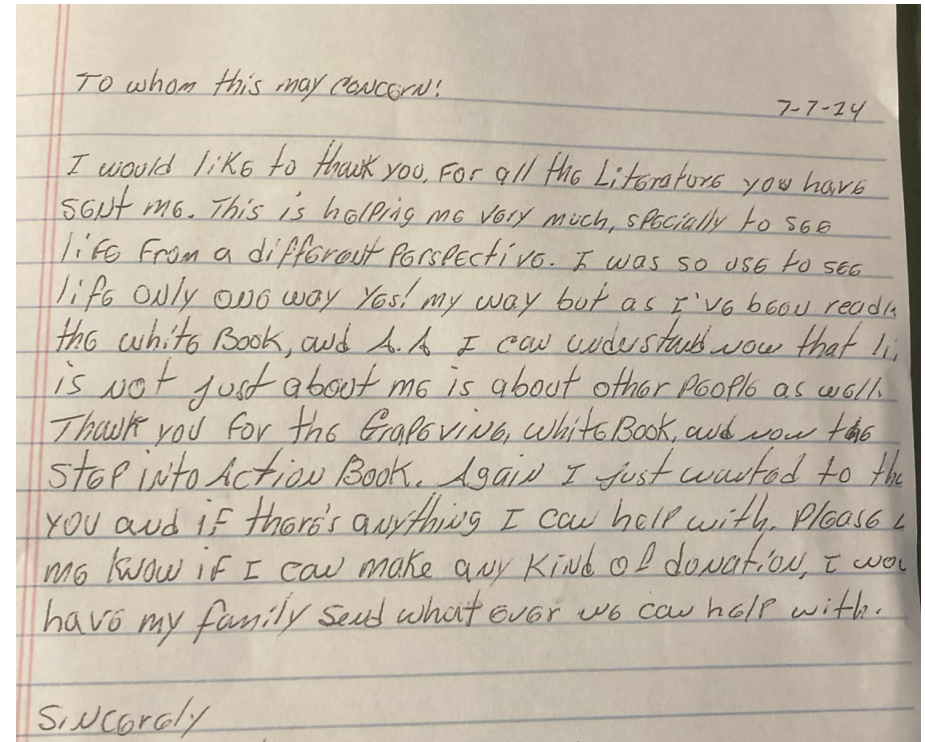 To whom this may concern!
7-7-24
I would like to thank you, For all the Literature you have
sent me. This is helping me very much, specially to see
life From a different Perspective. I was so use to see
life only one way Yes! my way but as I've been readin
the white Book, and A.A I can understand now that li
is not just about me is about other People as well.
Thank you for the Grapevine, white Book, and now the
Step into Action Book. Again I just wanted to tha
you and if there's anything I can help with. Please l
me know if I can make any kind of donation, I wou
have my family send what ever we can help with.
Sincerely